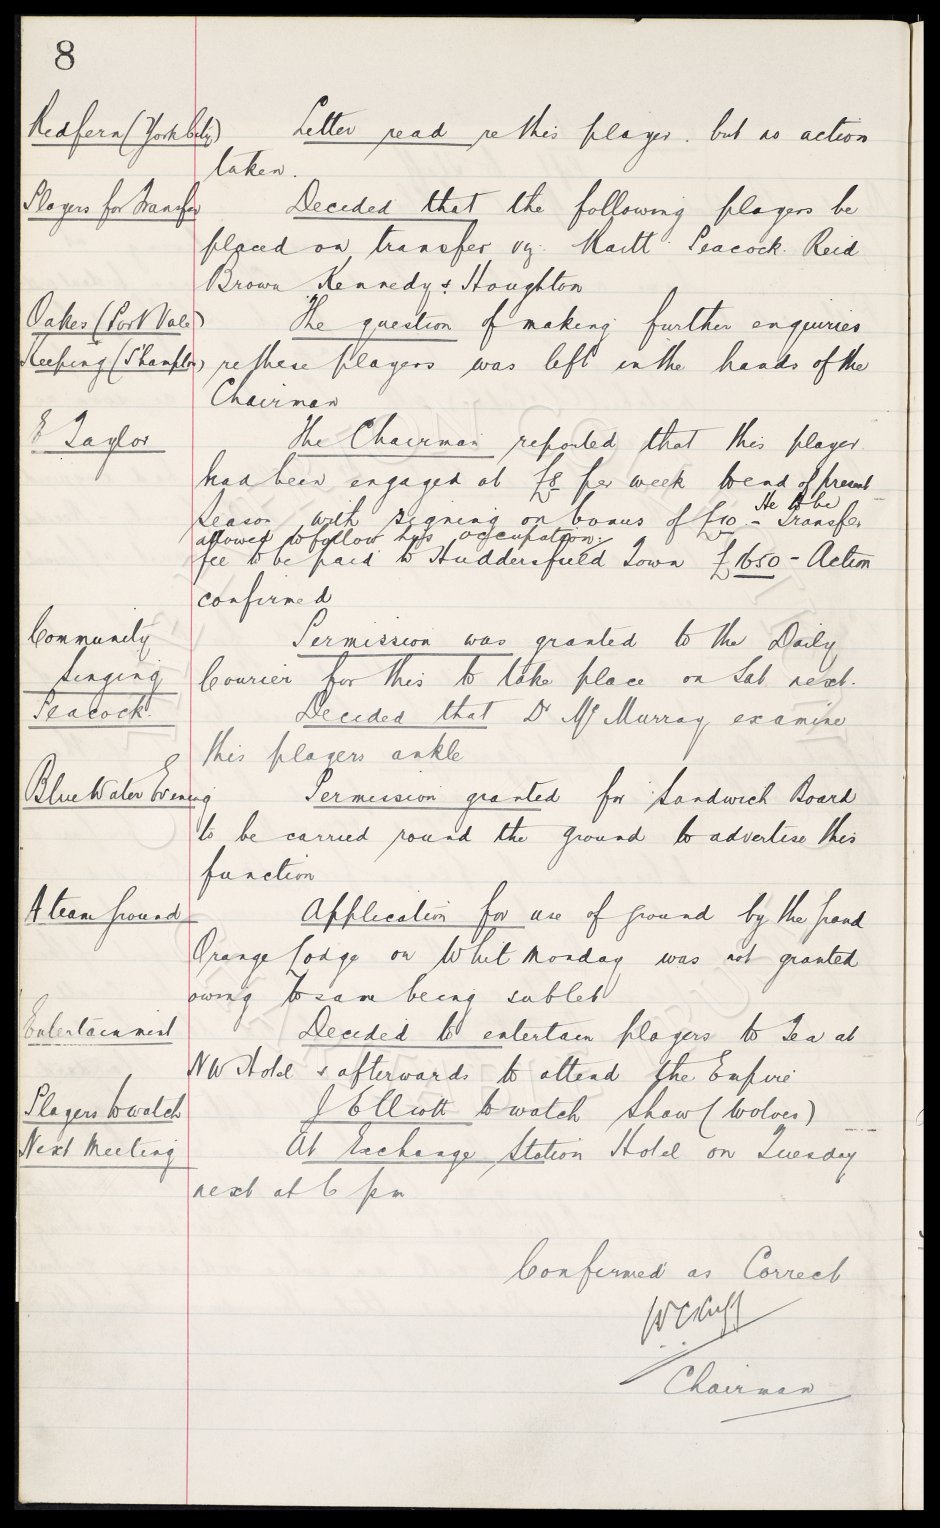 8
Redfern (York City) Letter read re this player. but no action
taken.
Players for Transfer Decided that the following players be
placed on transfer viz. Maitt Peacock. Reid
Brown Kennedy & Houghton
Oakes (Port Vale) The question of making further enquiries
Keeping (S'hampton) re these players was left in the hands of the
Chairman
E Taylor The Chairman reported that this player
had been engaged at £8 per week to end of present
season with signing on bonus of £10. - He to be
allowed to follow his occupation. Transfer
fee to be paid to Huddersfield Town £1650 - Action
confirmed
Community Permission was granted to the Daily
Singing Courier for this to take place on Sat next.
Peacock. Decided that Dr McMurray examine
this players ankle
Blue Water Evening Permission granted for Sandwich Board
to be carried round the ground to advertise this
function
A team ground Application for use of ground by the Grand
Orange Lodge on Whit Monday was not granted
owing to same being sublet
Entertainment Decided to entertain players to Tea at
NW Hotel & afterwards to attend the Empire
Players to watch J Elliott to watch Shaw (Wolves)
Next Meeting At Exchange Station Hotel on Tuesday
next at 6 pm
Confirmed as Correct
W C Cuff
Chairman